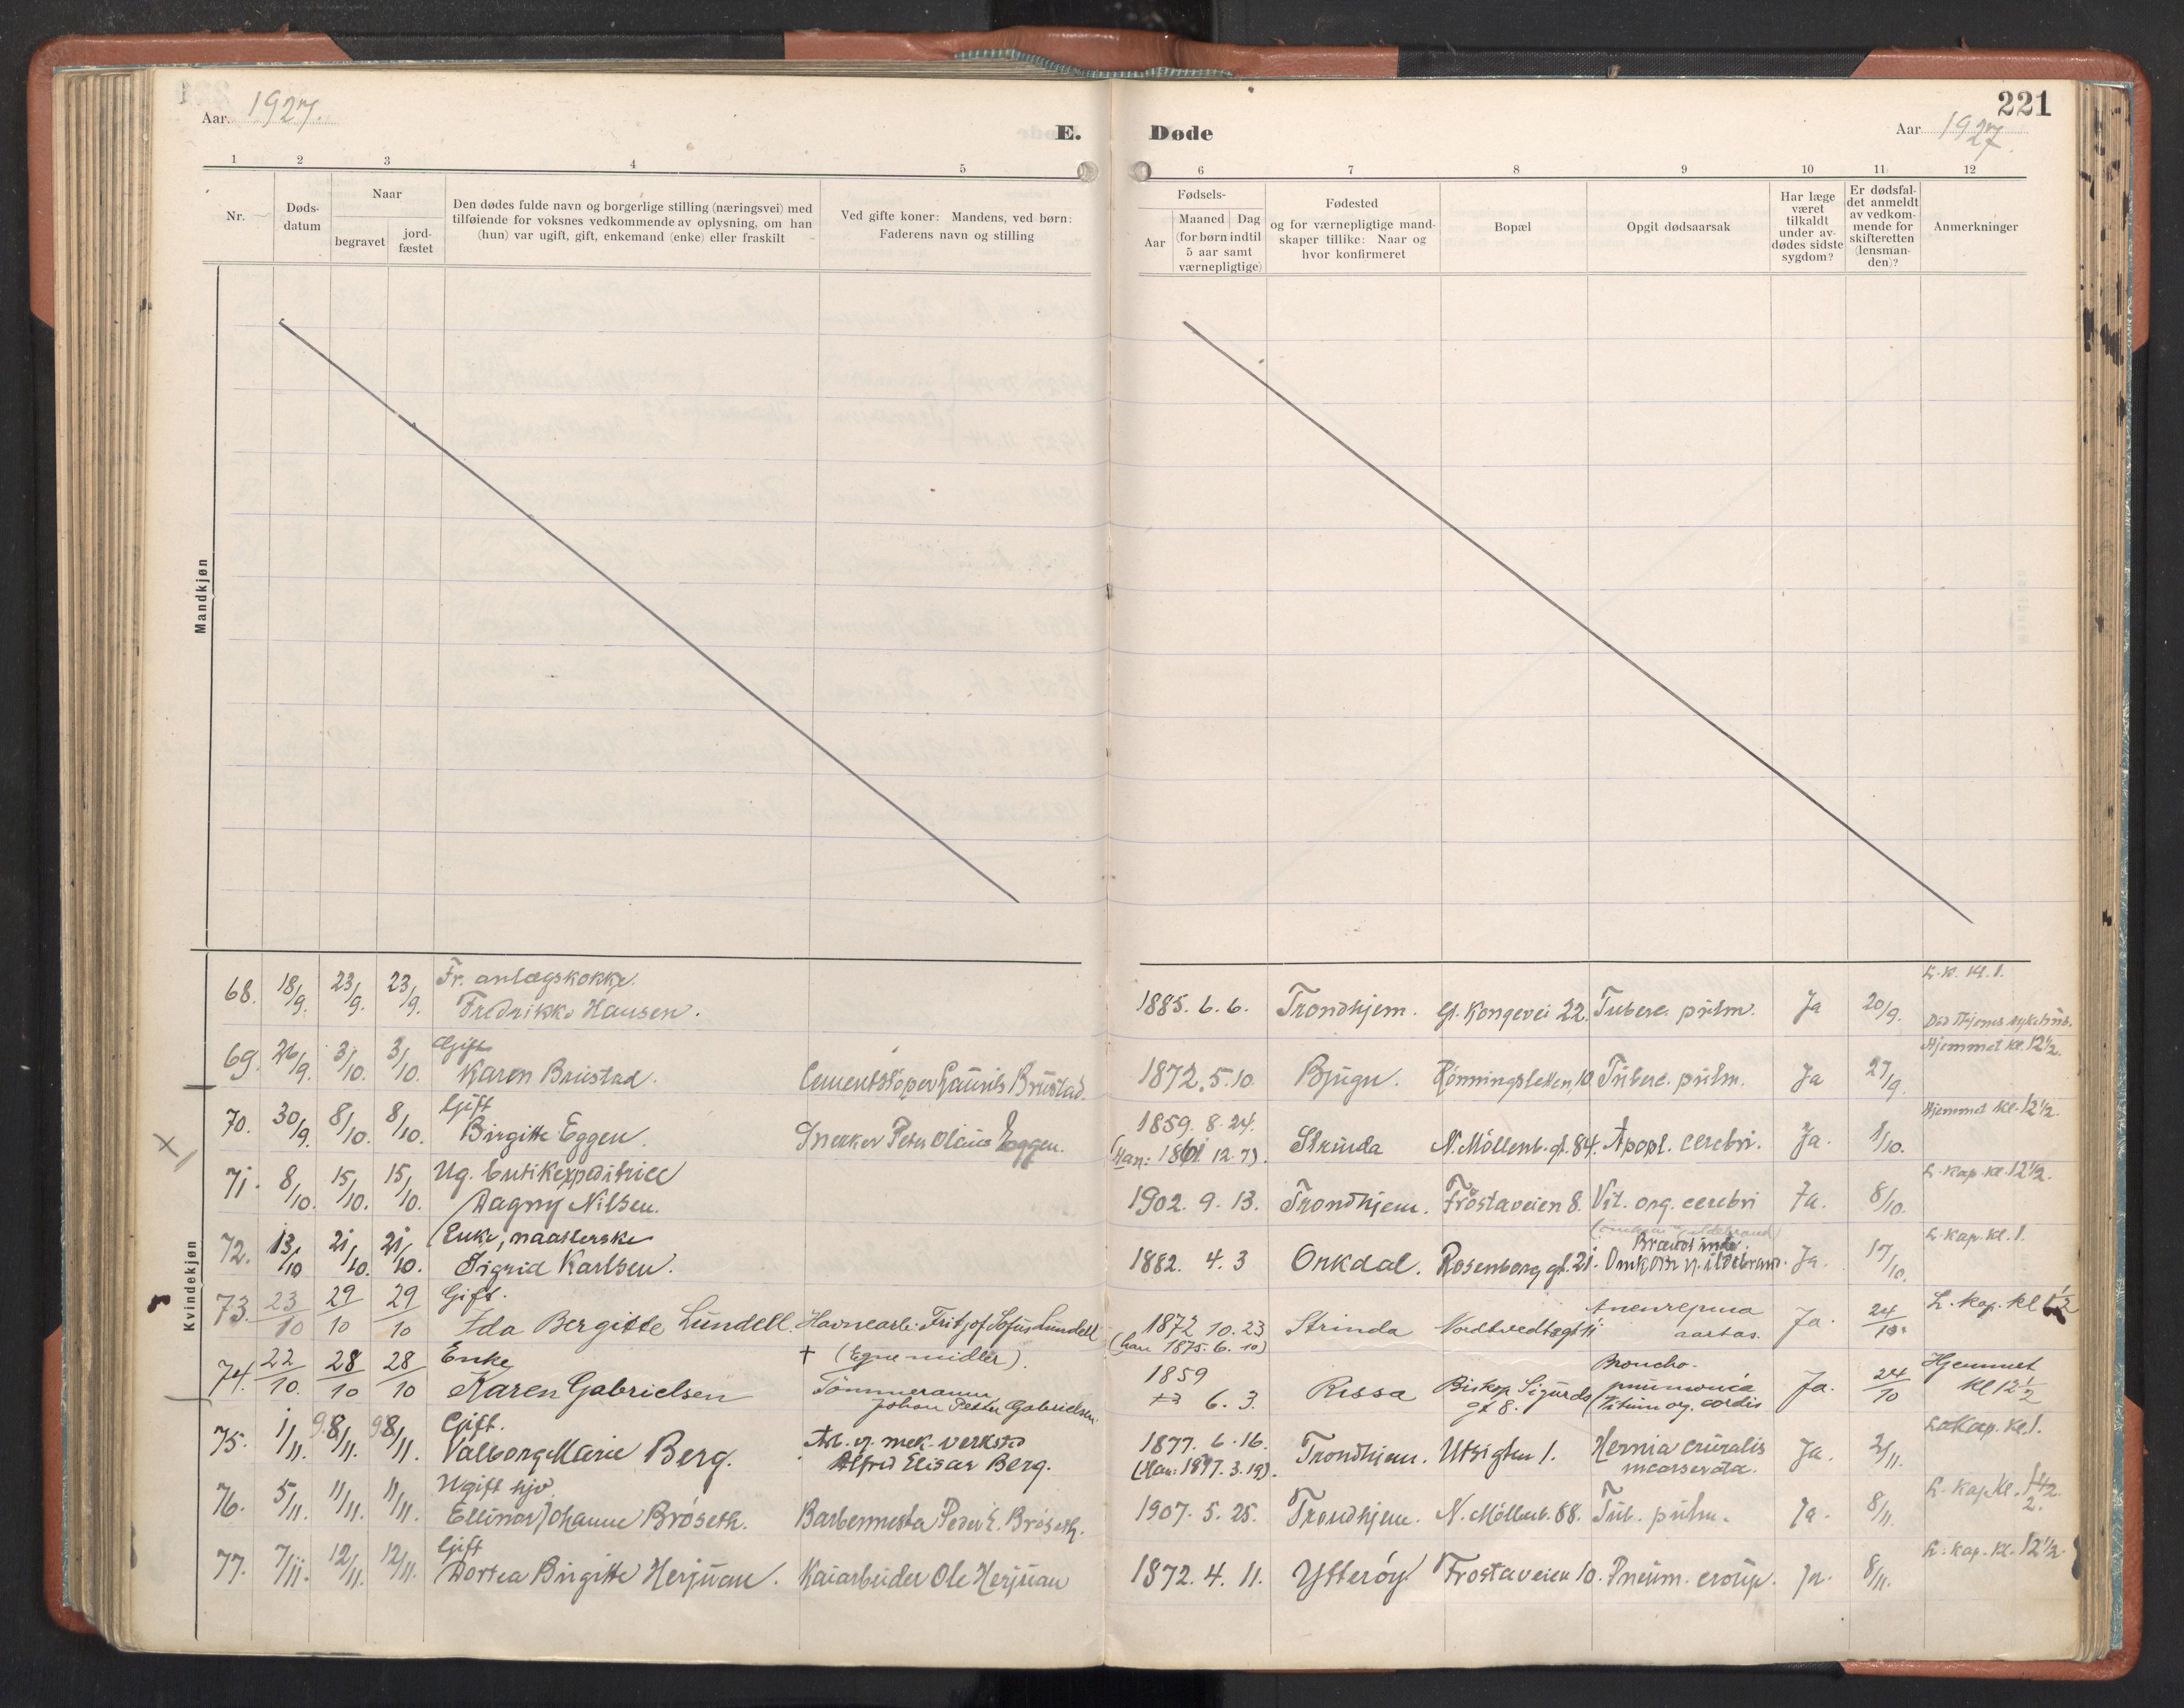 221
Aar 1927.
E.
Døde
Aar 1927.
1 2 3 4 5 6 7 8 9 10 11 12
Nr.
Døds-
datum
Naar
begravet
jord-
fæstet
Den dødes fulde navn og borgerlige stilling (næringsvei) med
tilføiende for voksnes vedkommende av oplysning, om han
(hun) var ugift, gift, enkemand (enke) eller fraskilt
Ved gifte koner: Mandens, ved børn:
Faderens navn og stilling
Fødsels-
Aar
Maaned Dag
(for børn indtil
5 aar samt
værnepligtige)
Fødested
og for værnepligtige mand-
skaper tillike: Naar og
hvor konfirmeret
Bopæl
Opgit dødsaarsak
Har læge
været
tilkaldt
under av-
dødes sidste
sygdom?
Er dødsfal-
det anmeldt
av vedkom-
mende for
skifteretten
(lensman-
den)?
Anmerkninger
Mandkjøn
Kvindekjøn
Fr. anlægskokke. L. k. kl. 1.
68. 18/9. 23/9. 23/9. Fredrikke Hansen. 1885. 6. 6. Trondhjem. Gl. Kongevei 22. Tuberc. pulm. Ja 20/9. Død Thjems sykehus.
Gift Hjemmet kl. 12½.
69. 26/9. 3/10. 3/10. Karen Brustad. Cementstøper Laurits Brustad. 1872. 5. 10. Bjugn. Rønningsletten 10. Tuberc. pulm. Ja 27/9.
Gift 1859. 8. 24. Hjemmet kl. 12½.
70. 30/9. 8/10. 8/10. Birgitte Eggen. Snekker Peter Olaus Eggen. (Han: 1861 12. 7). Strinda N. Möllenb. gt. 84. Apopl. cerebri. Ja. 1/10.
Ug. butikexpeditrice L. kap. kl. 12½.
71. 8/10. 15/10. 15/10. Dagny Nilsen. 1902. 9. 13. Trondhjem. Frostaveien 8. Vit. org. cerebri Ja. 8/10.
Enke, L. kap. kl. 1.
72. 13/10 21/10. 21/10. Sigrid Karlsen. 1882. 4. 3 Orkdal. Rosenborg gt. 21. Omkom v. ildebrand. Ja. 17/10.
Gift. Aneurepma L. kap. kl
73. 23/10 29/10 29/10 Ida Bergitte Lundell. Havnearb. Fritjof Sofus Lundell 1872 10. 23 Strinda aortas. Ja. 24/10.
(han 1875. 6. 10)
Enke † (Egne midler). 1859 Broncho- Hjemmet
74. 22/10. 28/10 28/10 Karen Gabrielsen Tömmermann 6. 3. Rissa Biskop Sigurds pnumonia Ja. 24/10 kl 12½
Johan Petter Gabrielsen. gt 8. (Vitium org. cordis
Gift. Arb. v. mek. verksted 1877. 6. 16. Hernia cruralis L. Kap. kl. 1.
75. 1/11. 9 8/11. 9 8/11. Valborg Marie Berg. Alfred Elisar Berg. (Han: 1877. 3. 19). Trondhjem. Utsigten 1. incarserata. Ja. 2/11.
Ugift hjv. L. kap. kl.
76. 5/11. 11/11. 11/11. Ellinor Johanne Bröseth. Barbermester Peder E. Bröseth. 1907. 5. 25. Trondhjem. N. Möllenb. 88. Tub. pulm. Ja. 8/11. 2.
Gift L. kap. kl. 12½.
77. 7/11. 12/11. 12/11. Dortea Birgitte Herjuan. Kaiarbeider Ole Herjuan 1872. 4. 11. Ytterøy Frostaveien 10. Pneum. croup. Ja. 8/11.